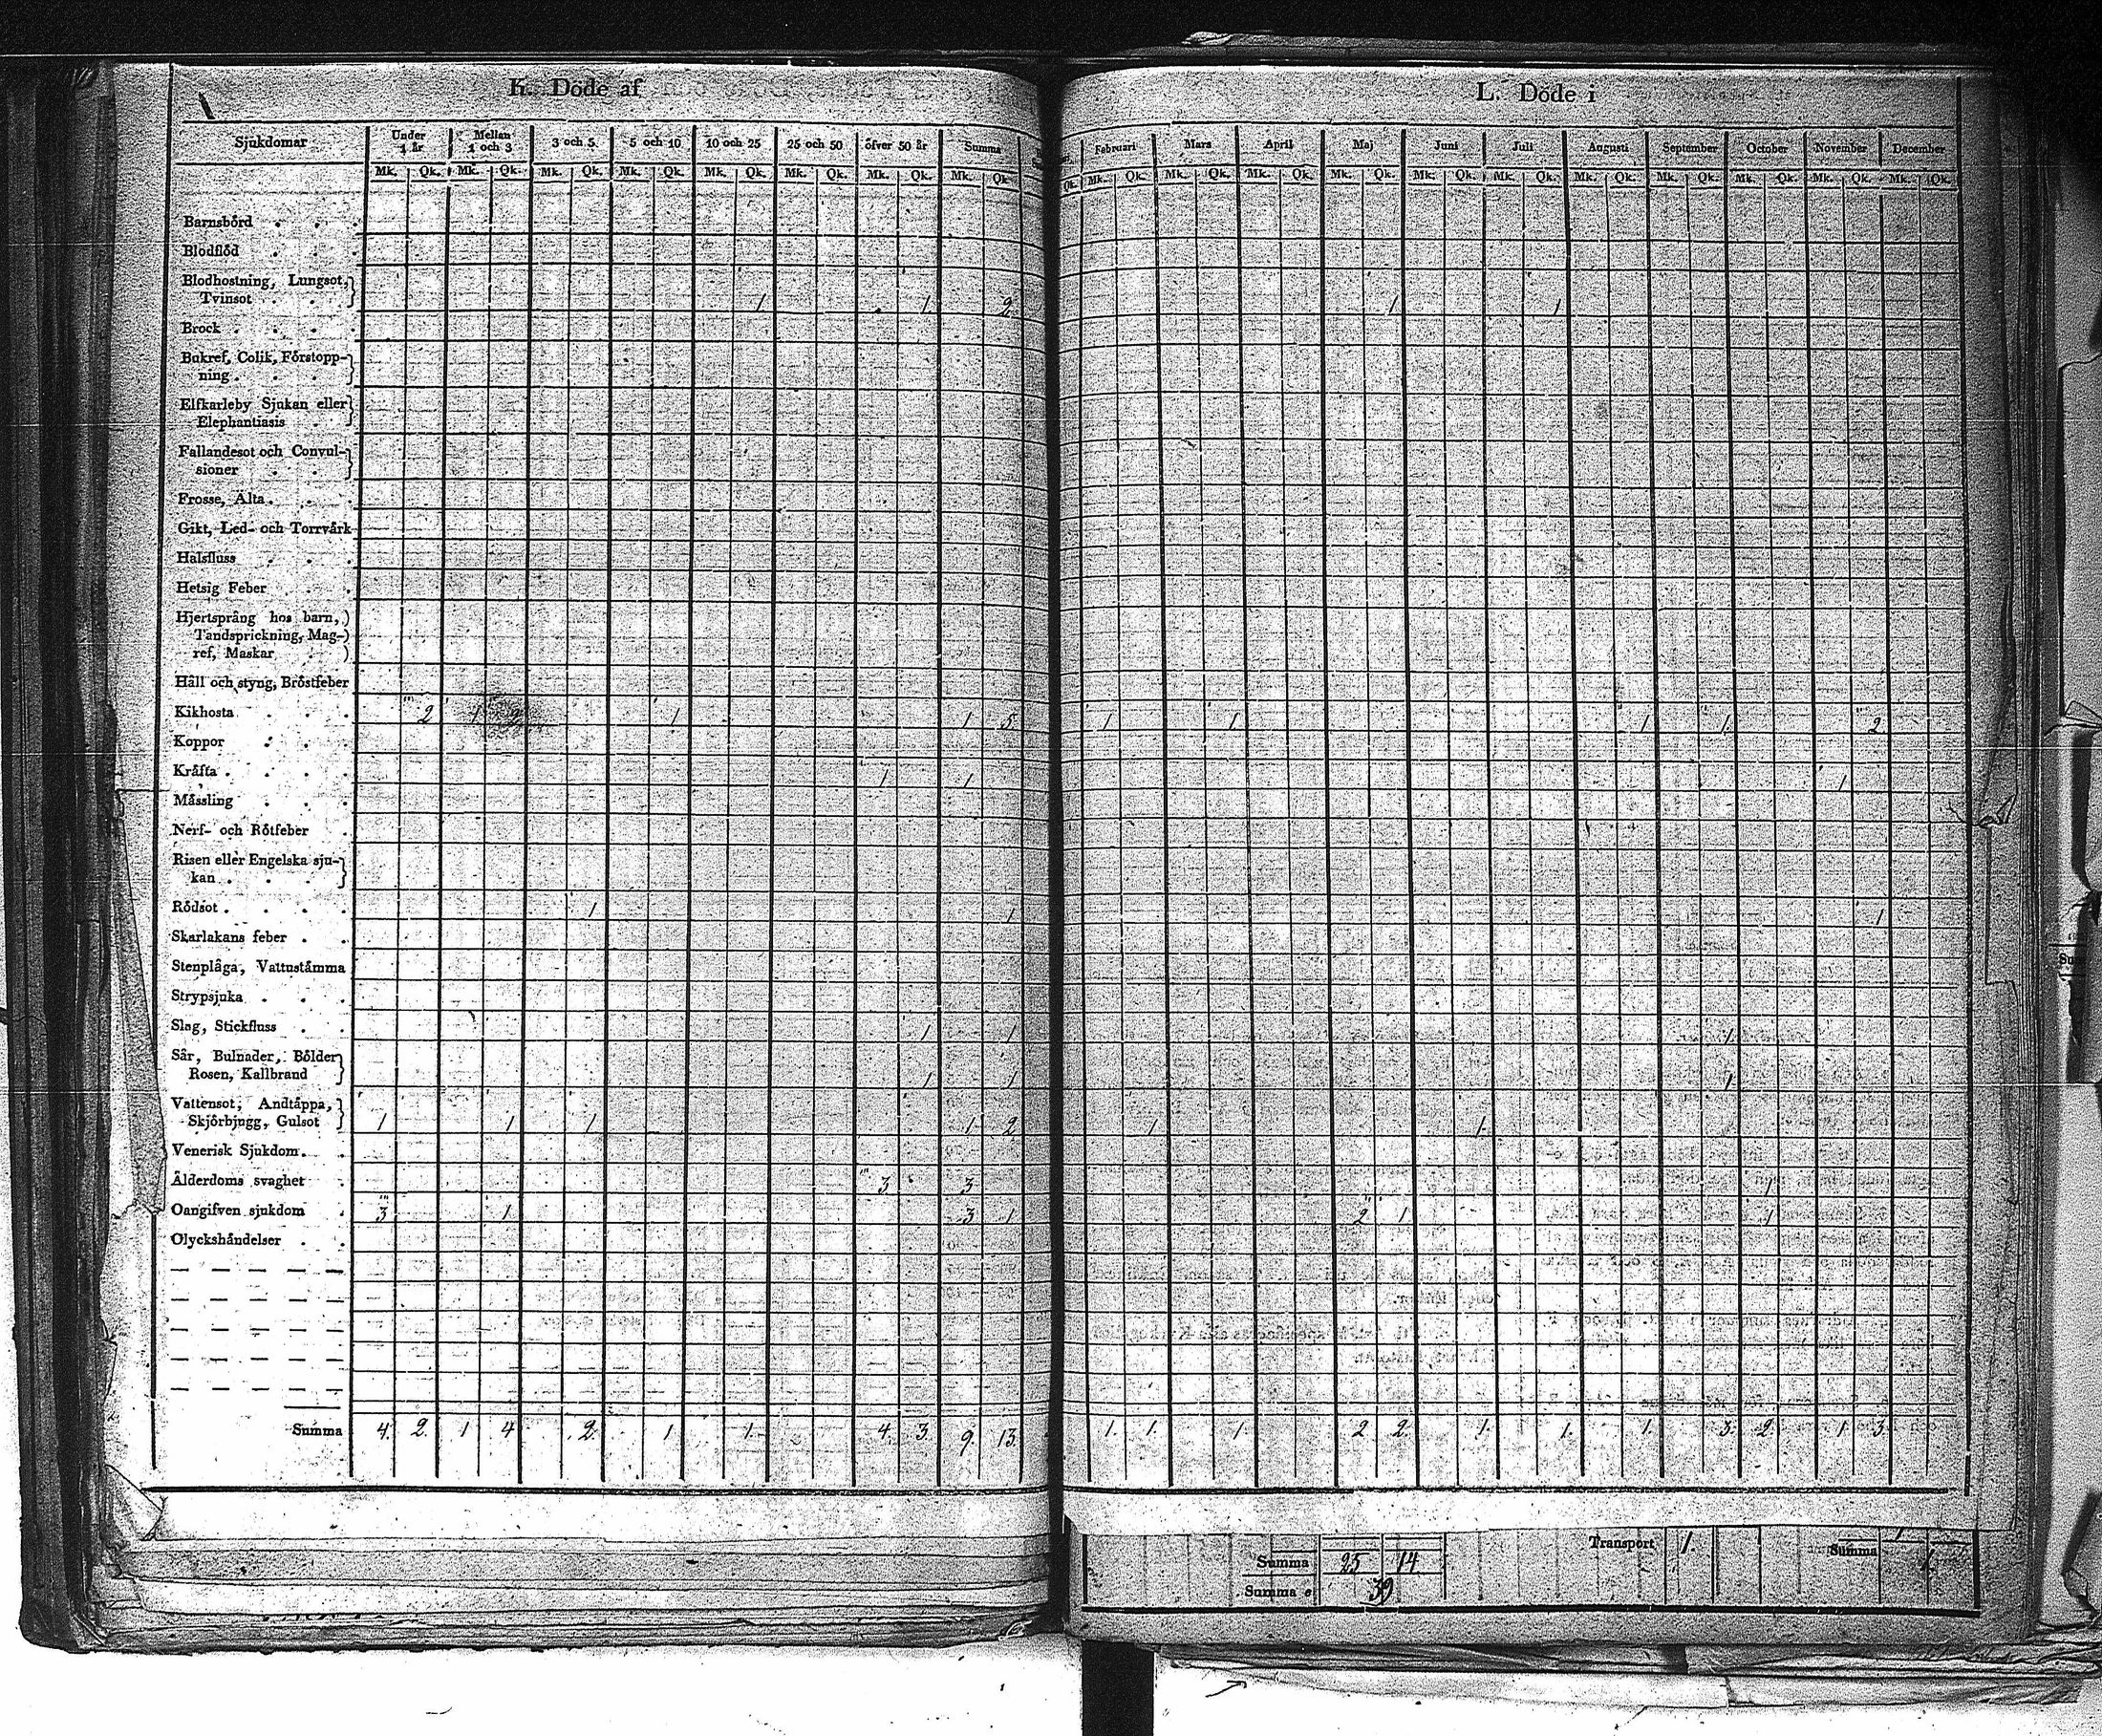 K. Döde af
Sjukdomar | Under 1 år | Mellan 1 och 3 | 3 och 5 | 5 och 10 | 10 och 25 | 25 och 50 | öfver 50 år | Summa
Mk. Qk. Mk. Qk. Mk. Qk. Mk. Qk. Mk. Qk. Mk. Qk. Mk. Qk. Mk. Qk.
Barnsbörd
Blodflöd
Blodhostning, Lungsot,
Tvinsot 1 1 2
Brock
Bukref, Colik, Förstopp-
ning
Elfkarleby Sjukan eller
Elephantiasis
Fallandesot och Convul-
sioner
Frosse, Älta
Gikt, Led- och Torrvärk
Halsfluss
Hetsig Feber
Hjertsprång hos barn,
Tandsprickning, Mag-
ref, Maskar
Håll och styng, Bröstfeber
Kikhosta 2 1 2 1 1 5
Koppor
Kräfta 1 1
Mässling
Nerf- och Rötfeber
Risen eller Engelska sju-
kan
Rödsot 1 1
Skarlakans feber
Stenplåga, Vattustämma
Strypsjuka
Slag, Stickfluss 1 1
Sår, Bulnader, Bölder
Rosen, Kallbrand 1 1
Vattensot, Andtäppa,
Skjörbjugg, Gulsot 1 1 1 1 2
Venerisk Sjukdom
Ålderdoms svaghet 3 3
Oangifven sjukdom 3 1 3 1
Olyckshändelser
Summa 4. 2. 1 4 2. 1 1. 4. 3. 9. 13.
L. Döde i
Februari | Mars | April | Maj | Juni | Juli | Augusti | September | October | November | December
Qk. Mk. Qk. Mk. Qk. Mk. Qk. Mk. Qk. Mk. Qk. Mk. Qk. Mk. Qk. Mk. Qk. Mk. Qk. Mk. Qk. Mk. Qk.
1 1
1 1. 1 1. 2
1
1
1.
1
1 1.
1
2 1 1
1. 1. 1. 2 2. 1. 1. 1. 3. 2. 1 3.
Summa 25 14 Transport 1. Summa
Summa e 39